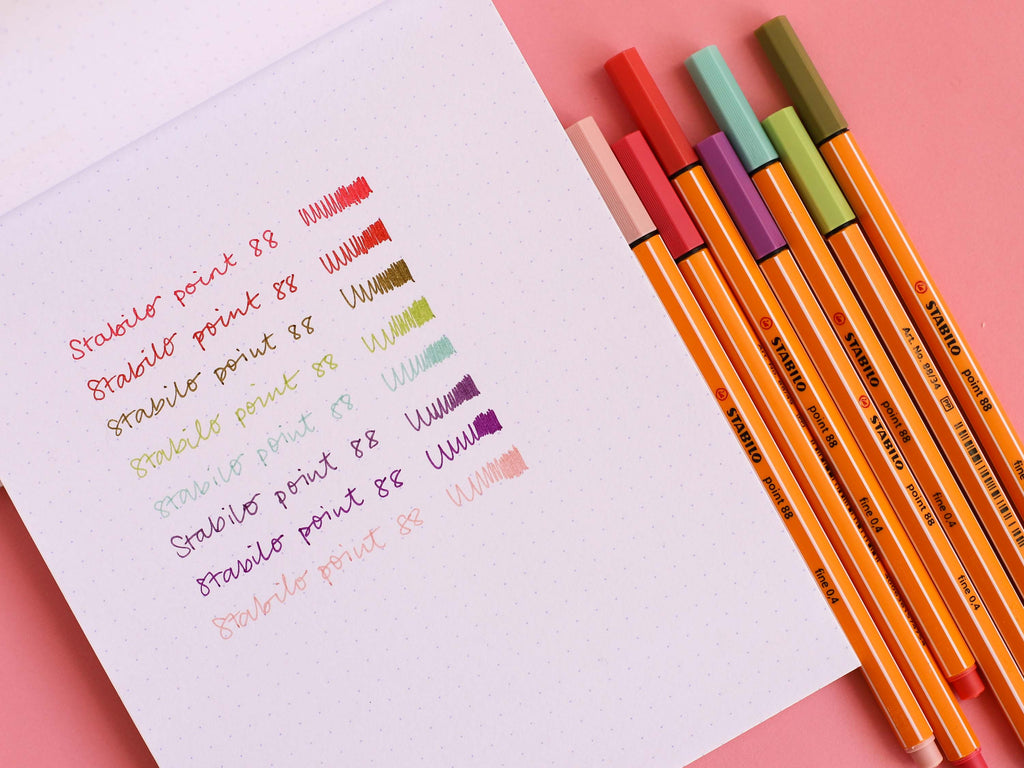 Stabilo point 88
Stabilo point 88
Stabilo point 88
Stabilo point 88
Stabilo point 88
Stabilo point 88
Stabilo point 88
Stabilo point 88
STABILO point 88 fine 0,4
STABILO point 88 fine 0,4
STABILO point 88 fine 0,4
STABILO point 88 fine 0,4
Art. No. 88/34 PP
STABILO point 88